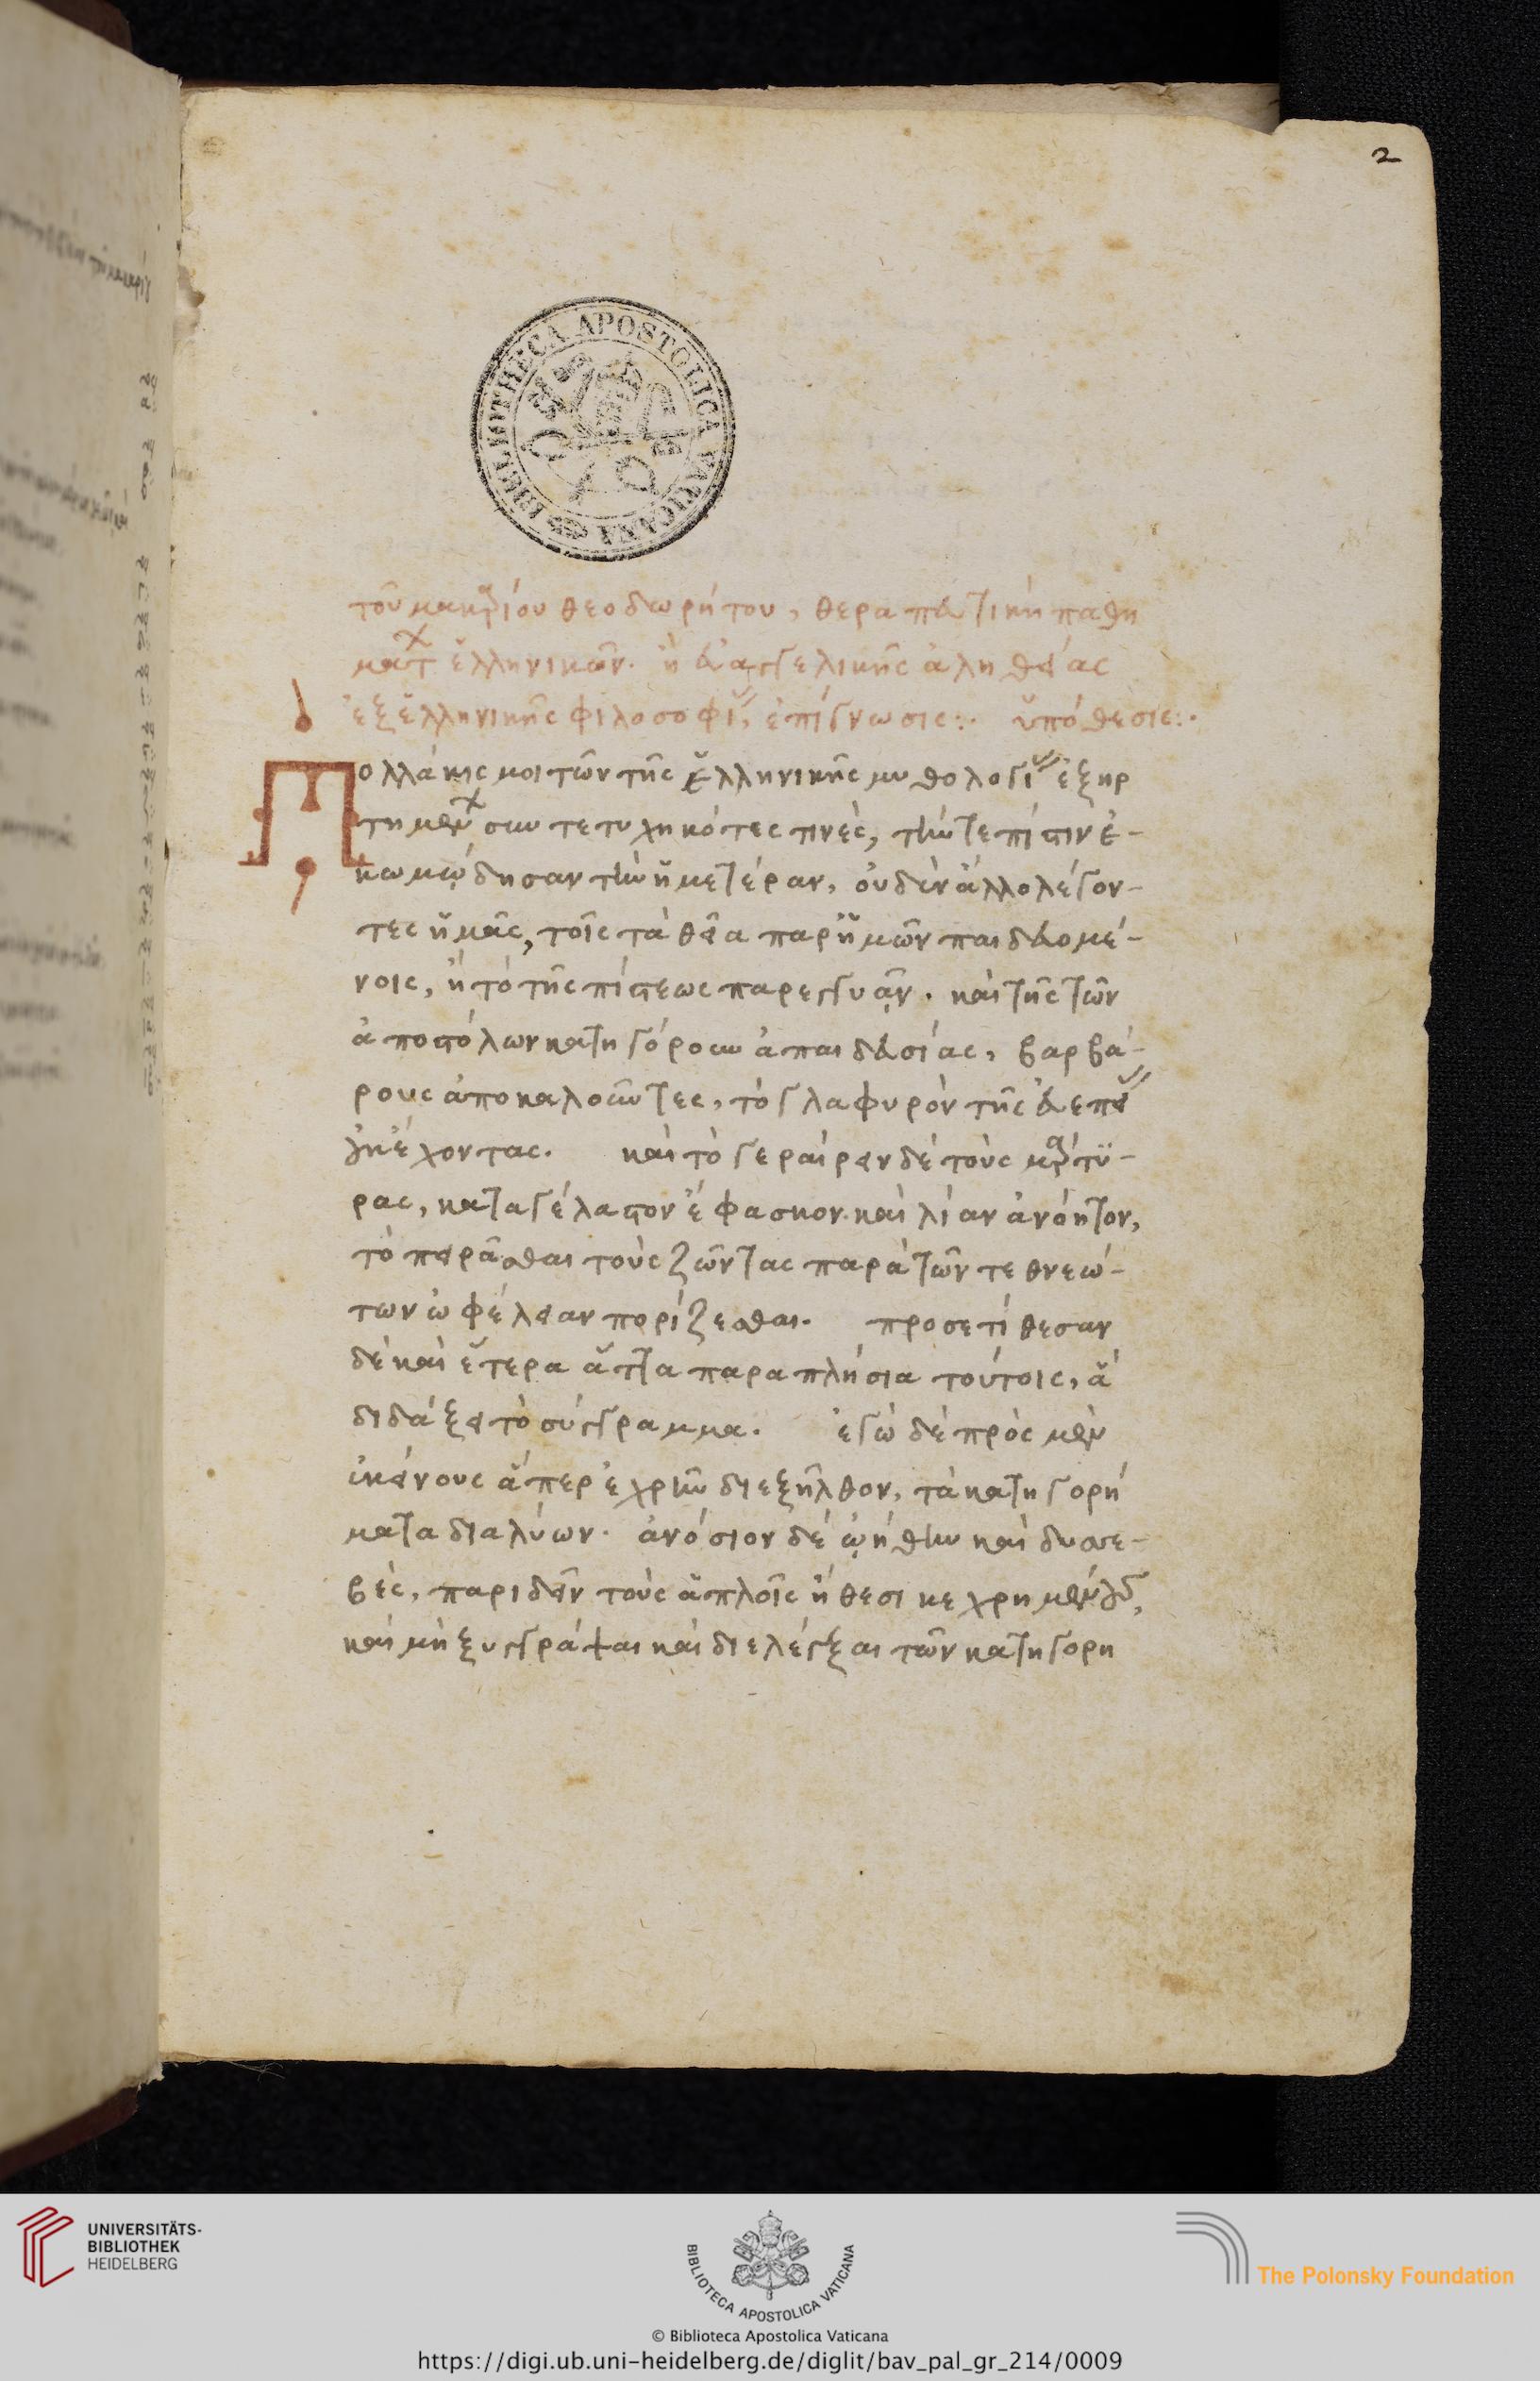 2
BIBLIOTHECA APOSTOLICA VATICANA
τοῦ μακαρίου θεοδωρήτου, θεραπευτικὴ παθη
μάτων ἑλληνικῶν. ἢ εὐαγγελικῆς ἀληθείας
ἐξ ἑλληνικῆς φιλοσοφίας ἐπίγνωσις:. ὑπόθεσις:.
Πολλάκις μοι τῶν τῆς ἑλληνικῆς μυθολογίας ἐξηρ
τημένων συντετυχηκότες τινὲς, τήν τε πίστιν ἐ-
κωμῴδησαν τὴν ἡμετέραν, οὐδὲν ἄλλο λέγον-
τες ἡμᾶς, τοῖς τὰ θεῖα παρ' ἡμῶν παιδευομέ-
νοις, ἢ τὸ τῆς πίστεως παρεγγυᾷν. καὶ τῆς τῶν
ἀποστόλων κατηγόρουν ἀπαιδευσίας, βαρβά-
ρους ἀποκαλοῦντες, τὸ γλαφυρὸν τῆς εὐεπείας
οὐκ ἔχοντας. καὶ τὸ γεραίρειν δὲ τοὺς μάρτυ-
ρας, καταγέλαστον ἔφασκον. καὶ λίαν ἀνόητον,
τὸ πειρᾶσθαι τοὺς ζῶντας παρὰ τῶν τεθνεώ-
των ὠφέλειαν πορίζεσθαι. προσετίθεσαν
δὲ καὶ ἕτερα ἄττα παραπλήσια τούτοις, ἃ
διδάξει τὸ σύγγραμμα. ἐγὼ δὲ πρὸς μὲν
ἐκείνους ἅπερ ἐχρῆν διεξῆλθον, τὰ κατηγορή
ματα διαλύων. ἀνόσιον δὲ ᾠήθην καὶ δυσσε-
βὲς, παριδεῖν τοὺς ἁπλοῖς ἤθεσι κεχρημένους,
καὶ μὴ ξυγγράψαι καὶ διελέγξαι τῶν κατηγορη
UNIVERSITÄTS-
BIBLIOTHEK
HEIDELBERG
BIBLIOTECA APOSTOLICA VATICANA
The Polonsky Foundation
© Biblioteca Apostolica Vaticana
https://digi.ub.uni-heidelberg.de/diglit/bav_pal_gr_214/0009